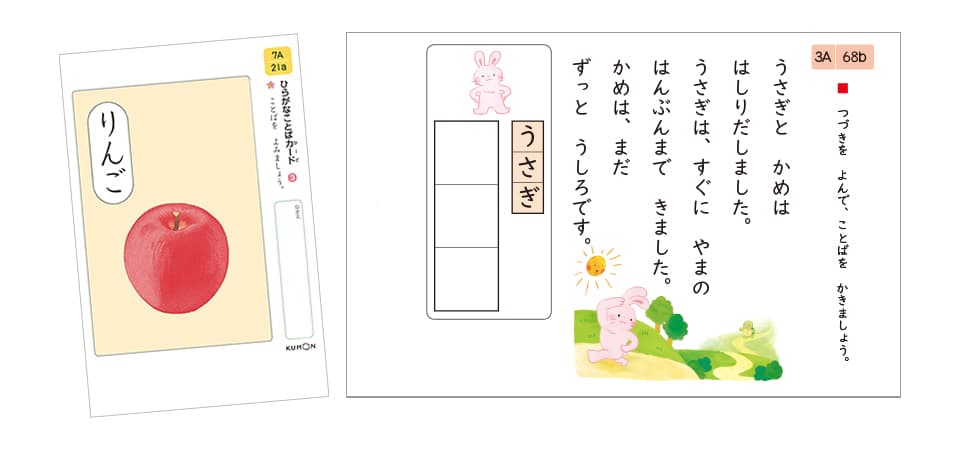 7A
21a
ひらがなことばカード 3
ことばを よみましょう。
なまえ
りんご
KUMON
3A 68b
■ つづきを よんで、ことばを かきましょう。
うさぎと かめは
はしりだしました。
うさぎは、すぐに やまの
はんぶんまで きました。
かめは、まだ
ずっと うしろです。
うさぎ